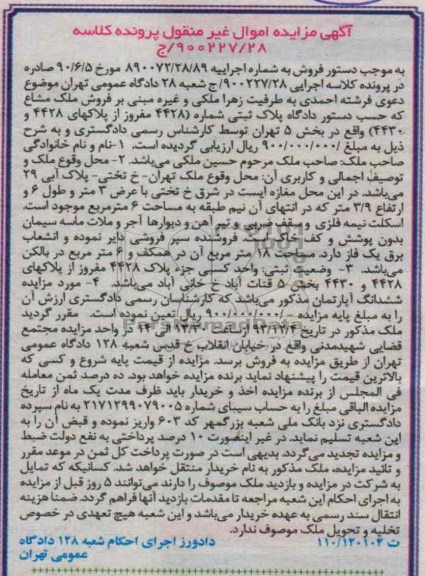 آگهی مزایده اموال غیر منقول پرونده کلاسه
۹۰۰۲۲۷/۲۸/ج
به موجب دستور فروش به شماره اجراییه ۸۹۰۰۷۲/۲۸/۸۹ مورخ ۹۰/۶/۵ صادره
در پرونده کلاسه اجرایی ۹۰۰۲۲۷/۲۸/ج شعبه ۲۸ دادگاه عمومی تهران موضوع
دعوی فرشته احمدی به طرفیت زهرا ملکی و غیره مبنی بر فروش ملک مشاع
که حسب دستور دادگاه پلاک ثبتی شماره (۴۴۲۸ مفروز از پلاکهای ۴۴۲۸ و
۴۴۳۰) واقع در بخش ۵ تهران توسط کارشناس رسمی دادگستری و به شرح
ذیل به مبلغ ۹۰۰/۰۰۰/۰۰۰/ ریال ارزیابی گردیده است. ۱-نام و نام خانوادگی
صاحب ملک: صاحب ملک مرحوم حسین ملکی می‌باشد. ۲- محل وقوع ملک و
توصیف اجمالی و کاربری آن: محل وقوع ملک تهران- خ تختی- پلاک آبی ۲۹
می‌باشد. در این محل مغازه ایست در شرق خ تختی با عرض ۳ متر و طول ۶ و
ارتفاع ۳/۹ متر که در انتهای آن نیم طبقه به مساحت ۶ مترمربع موجود است.
اسکلت نیمه فلزی و سقف ضربی و تیر آهن و دیوارها آجر و ملات ماسه سیمان
بدون پوشش و کف خاک است. فروشنده سیر فروشی دایر نموده و انشعاب
برق یک فاز دارد. مساحت ۱۸ متر مربع آن در همکف و ۶ متر مربع در بالکن
می‌باشد. ۳- وضعیت ثبتی: واحد کسبی جزء پلاک ۴۴۲۸ مفروز از پلاکهای
۴۴۲۸ و ۴۴۳۰ بخش ۵ قنات آباد خ خانی آباد می‌باشد. ۴- مورد مزایده
ششدانگ آپارتمان مذکور می‌باشد که کارشناسان رسمی دادگستری ارزش آن
را به مبلغ پایه مزایده ۹۰۰/۰۰۰/۰۰۰/ ریال تعین نموده است. مقرر گردید
ملک مذکور در تاریخ ۹۳/۴/۲۲ از ساعت ۹/۳۰ الی ۱۲ در واحد مزایده مجتمع
قضایی شهیدمدنی واقع در خیابان انقلاب خ قدس شعبه ۱۲۸ دادگاه عمومی
تهران از طریق مزایده به فروش برسد. مزایده از قیمت پایه شروع و کسی که
بالاترین قیمت را پیشنهاد نماید برنده مزایده خواهد بود. ده درصد ثمن معامله
فی المجلس از برنده مزایده اخذ و خریدار باید ظرف مدت یک ماه از تاریخ
مزایده الباقی مبلغ را به حساب سیبای شماره ۲۱۷۱۲۹۹۰۷۹۰۰۵ به نام سپرده
دادگستری نزد بانک ملی شعبه بزرگمهر کد ۶۰۳ واریز نموده و قبض آن را به
این شعبه تسلیم نماید. در غیر اینصورت ۱۰ درصد پرداختی به نفع دولت ضبط
و مزایده تجدید می‌گردد. بدیهی است در صورت پرداخت کل ثمن در موعد مقرر
و تائید مزایده، ملک مذکور به نام خریدار منتقل خواهد شد. کسانیکه که تمایل
به شرکت در مزایده و بازدید ملک موصوف را دارند می‌توانند ۵ روز قبل از مزایده
به اجرای احکام این شعبه مراجعه تا مقدمات بازدید آنها فراهم گردد. ضمنا هزینه
انتقال سند رسمی به عهده خریدار می‌باشد و این شعبه هیچ تعهدی در خصوص
تخلیه و تحویل ملک موصوف ندارد.
ت ۱۱۰/۱۲۰۱۰۴ دادورز اجرای احکام شعبه ۱۲۸ دادگاه
عمومی تهران